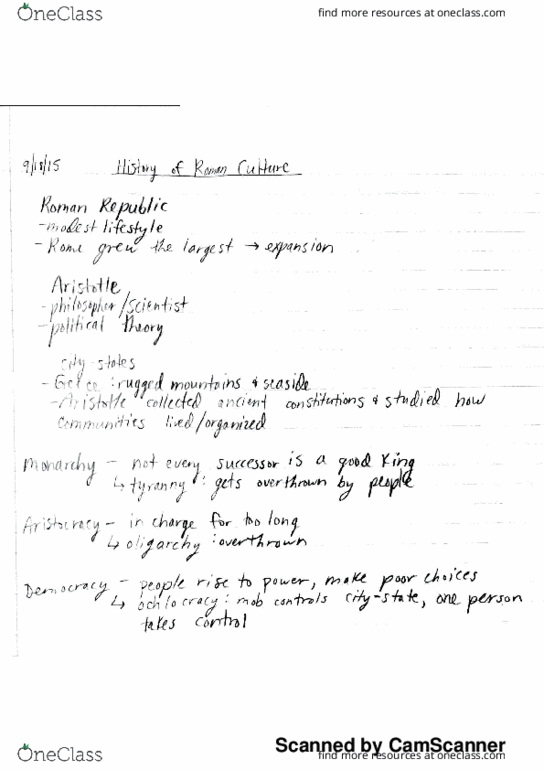 OneClass
find more resources at oneclass.com
9/18/15 History of Roman Culture
Roman Republic
- modest lifestyle
- Rome grew the largest → expansion
Aristotle
- philosopher/scientist
- political theory
city-states
- : rugged mountains & seaside
- Aristotle collected ancient constitutions & studied how
communities lived/organized
Monarchy - not every successor is a good King
↳ tyranny : gets overthrown by people
Aristocracy - in charge for too long
↳ oligarchy : overthrown
Democracy - people rise to power, make poor choices
↳ ochlocracy : mob controls city-state, one person
takes control
Scanned by CamScanner
OneClass
find more resources at oneclass.com